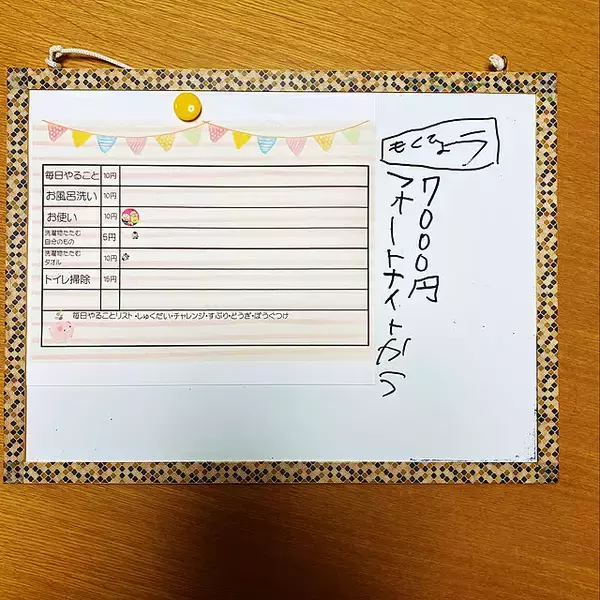 毎日やること 10円
お風呂洗い 10円
お使い 10円
洗濯物たたむ
自分のもの 5円
洗濯物たたむ
タオル 10円
トイレ掃除 15円
毎日やることリスト・しゅくだい・チャレンジ・すぶり・どうぎ・ぼうぐつけ
もくひょう
7000円
フォートナイトから